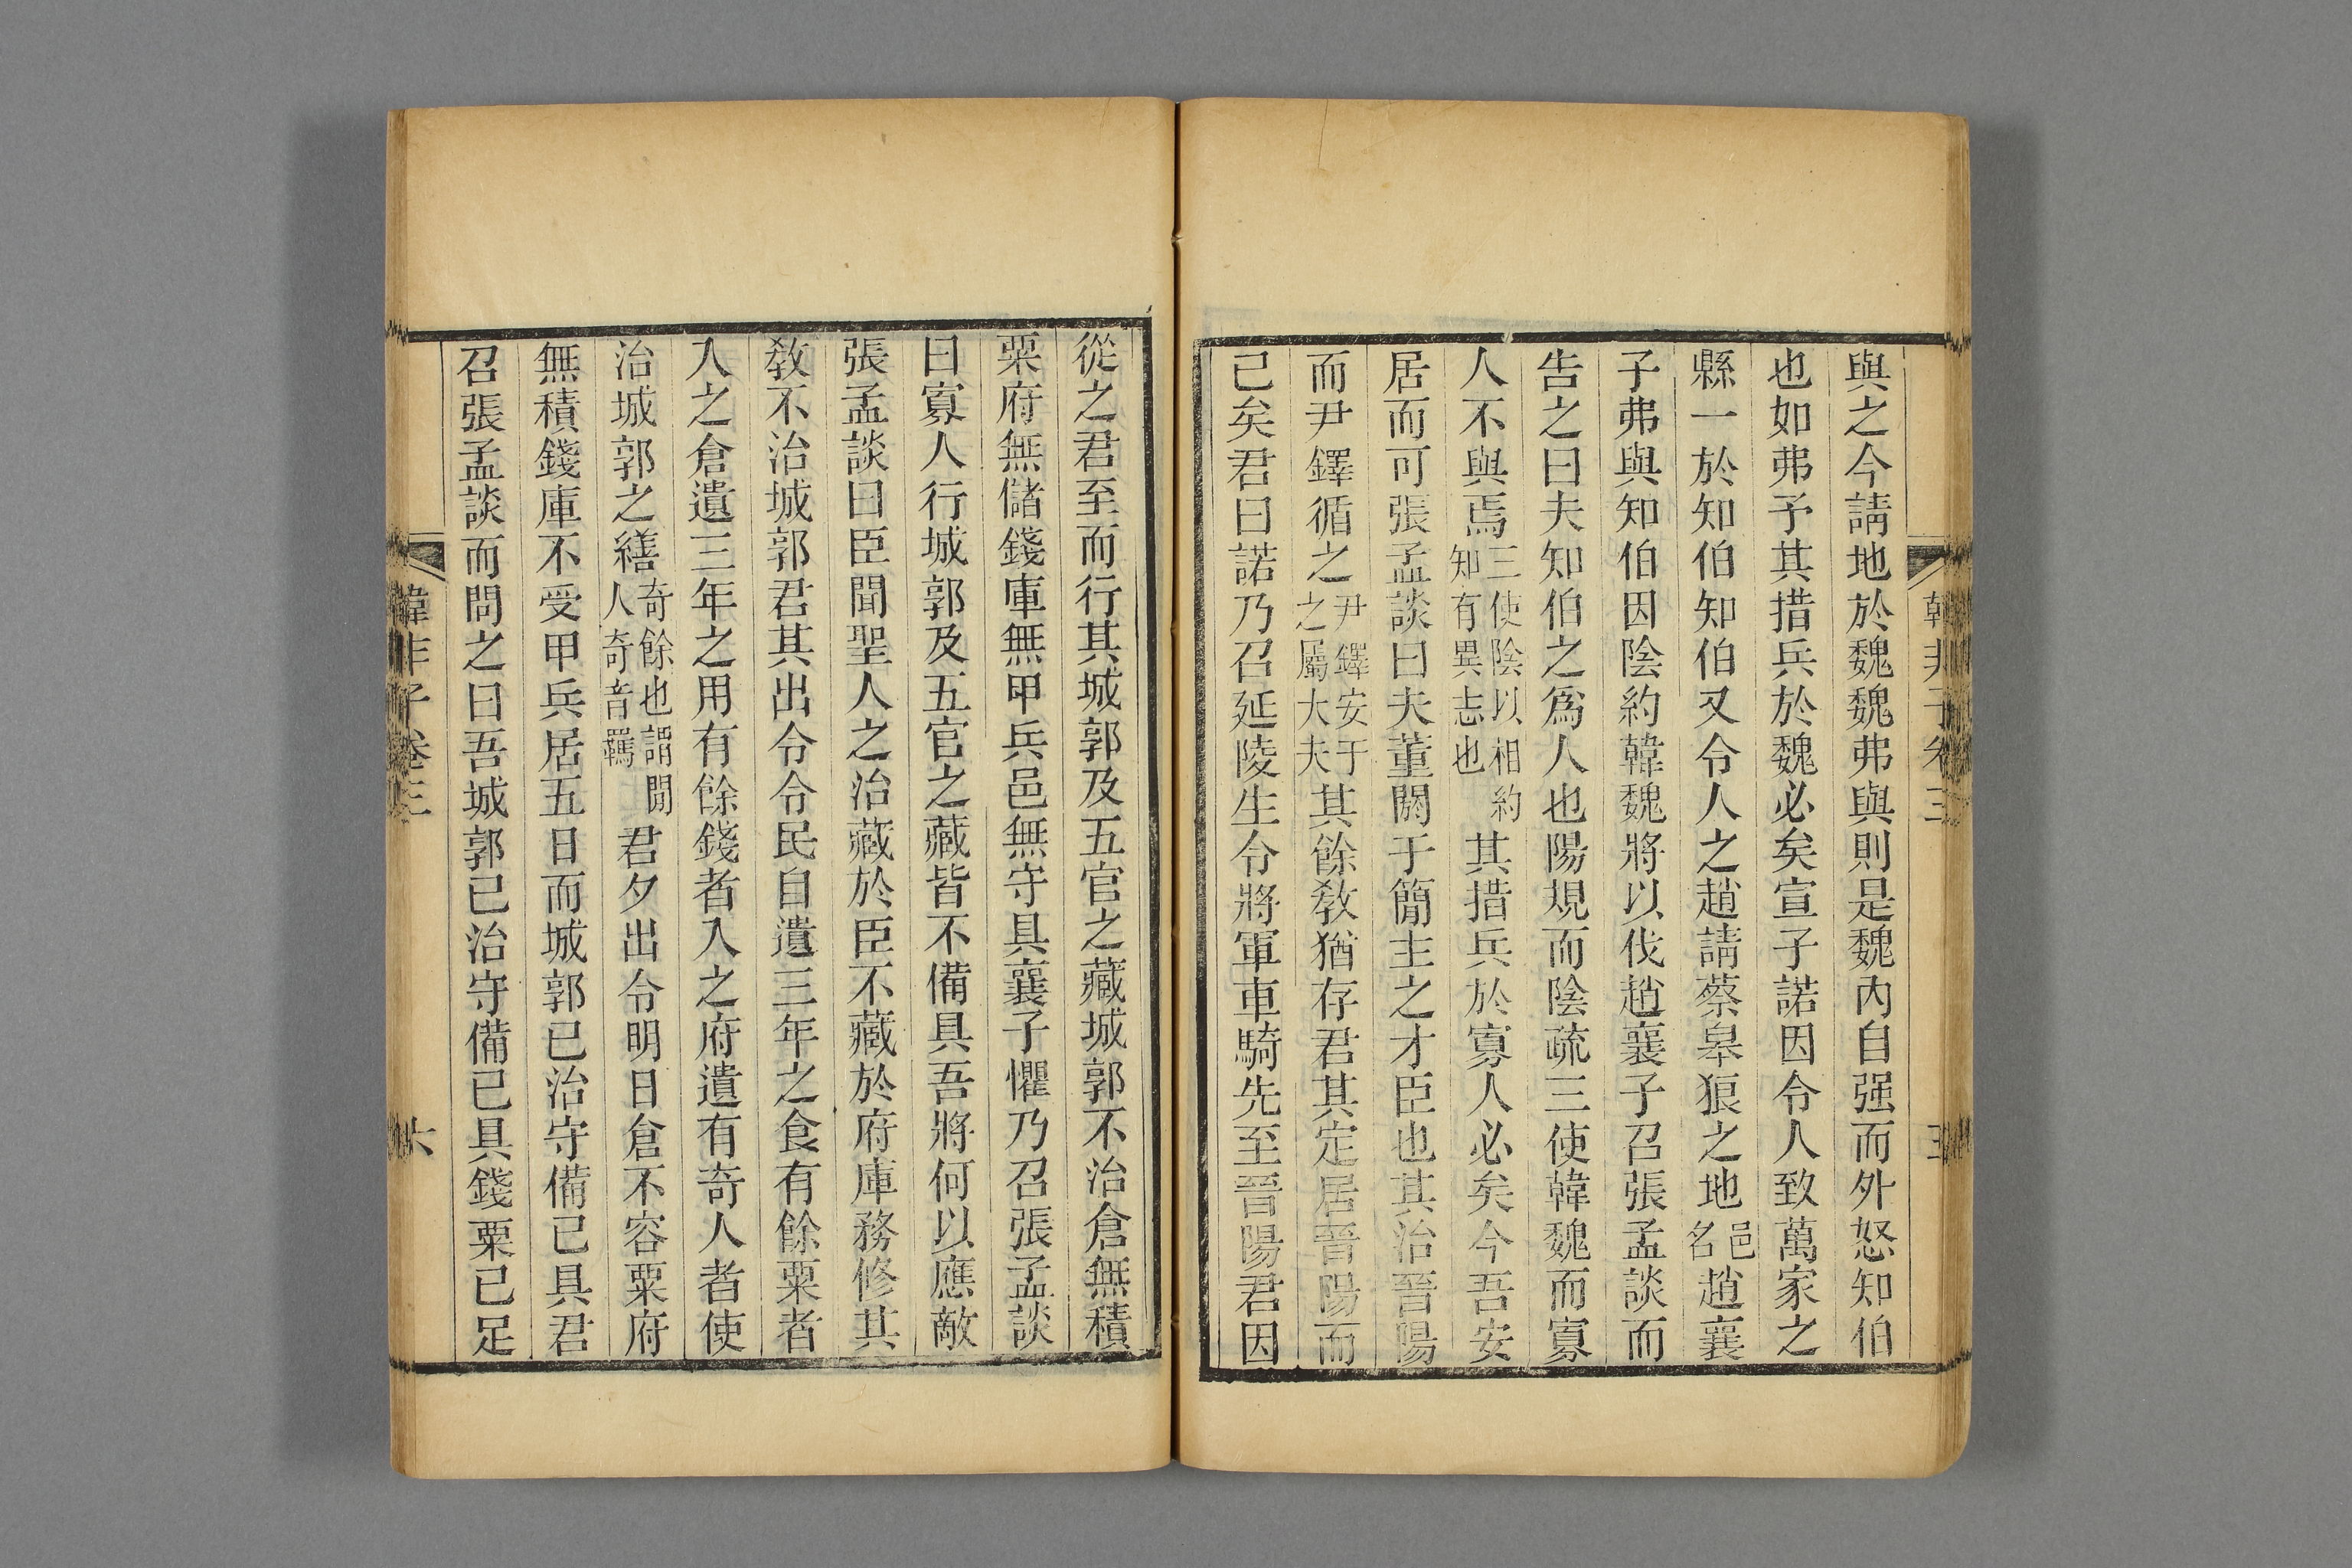 韓非子卷三
五
與之今請地於魏魏弗與則是魏內自强而外怒知伯
也如弗予其措兵於魏必矣宣子諾因令人致萬家之
縣一於知伯知伯又令人之趙請蔡皋狼之地邑名趙襄
子弗與知伯因陰約韓魏將以伐趙襄子召張孟談而
告之曰夫知伯之爲人也陽規而陰疏三使韓魏而寡
人不與焉三使陰以相約知有異志也其措兵於寡人必矣今吾安
居而可張孟談曰夫董閼于簡主之才臣也其治晉陽
而尹鐸循之尹鐸安于之屬大夫其餘敎猶存君其定居晉陽而
已矣君曰諾乃召延陵生令將軍車騎先至晉陽君因
從之君至而行其城郭及五官之藏城郭不治倉無積
粟府無儲錢庫無甲兵邑無守具襄子懼乃召張孟談
曰寡人行城郭及五官之藏皆不備具吾將何以應敵
張孟談曰臣聞聖人之治藏於臣不藏於府庫務修其
敎不治城郭君其出令令民自遺三年之食有餘粟者
入之倉遺三年之用有餘錢者入之府遺有奇人者使
治城郭之繕奇餘也謂閒人奇音羈君夕出令明日倉不容粟府
無積錢庫不受甲兵居五日而城郭已治守備已具君
召張孟談而問之曰吾城郭已治守備已具錢粟已足
韓非子卷三
六